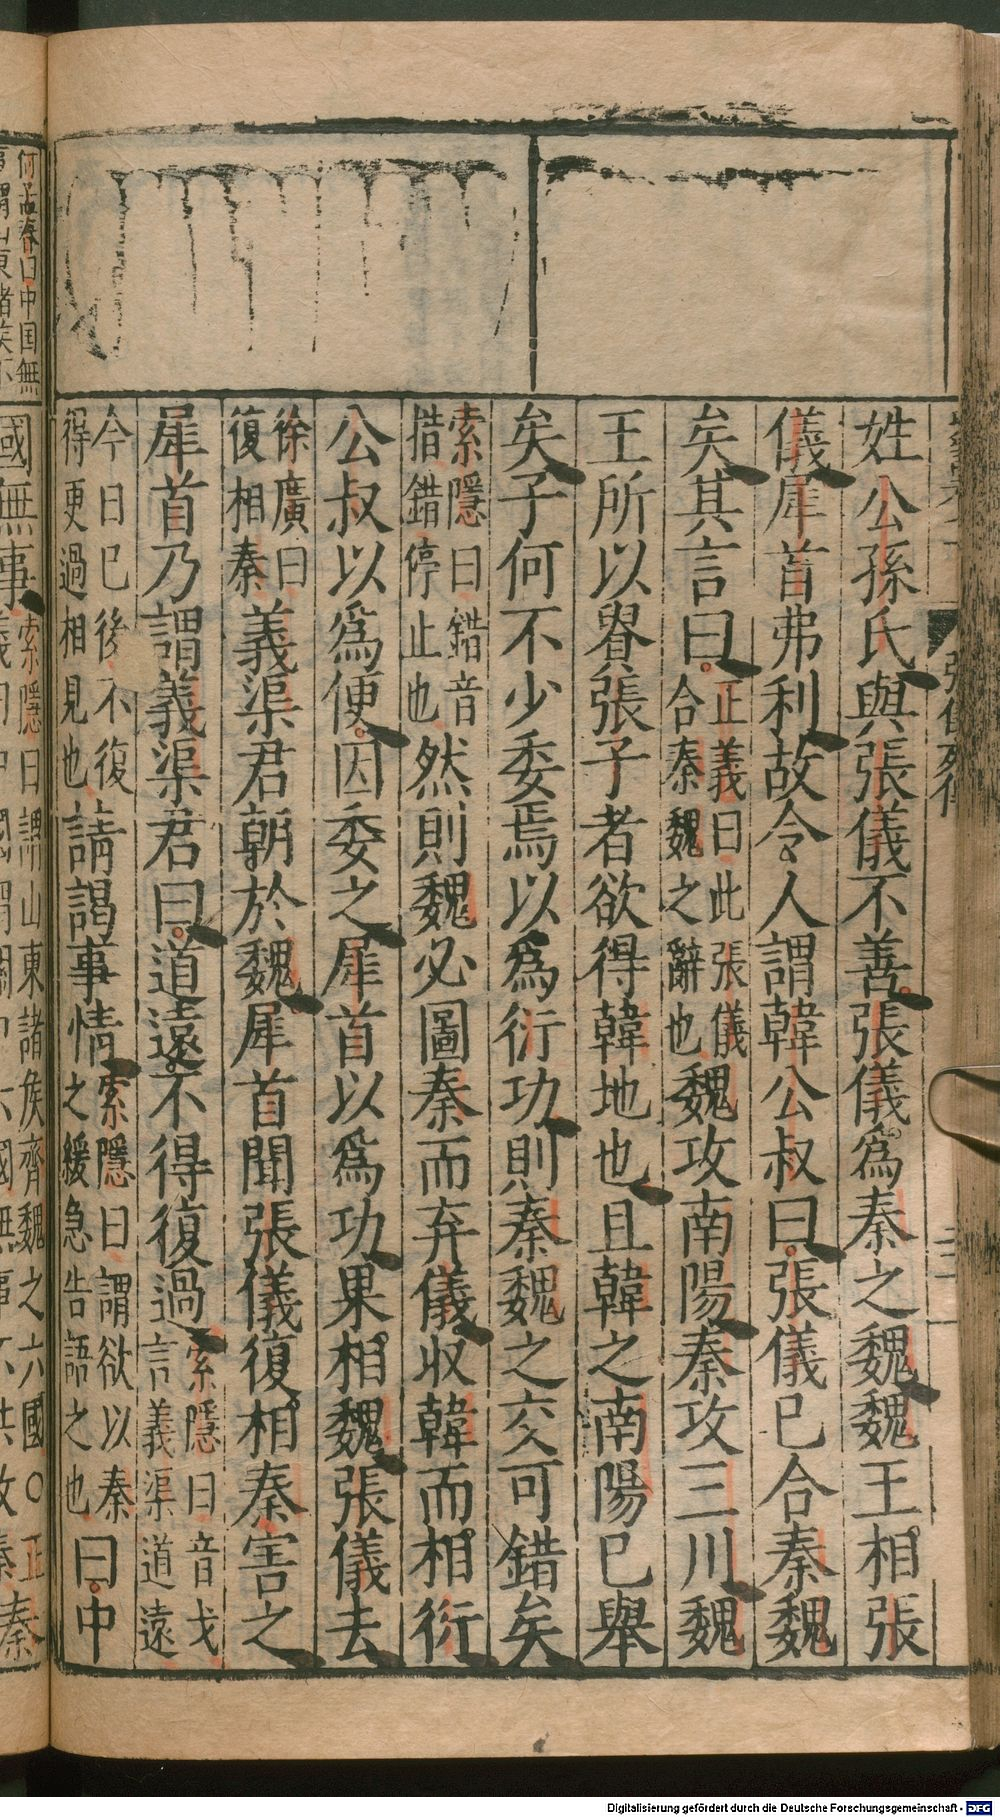 姓公孫氏與張儀不善張儀爲秦之魏魏王相張
儀犀首弗利故令人謂韓公叔曰張儀已合秦魏
矣其言曰正義曰此張儀合秦魏之辭也魏攻南陽秦攻三川魏
王所以貴張子者欲得韓地也且韓之南陽已舉
矣子何不少委焉以爲衍功則秦魏之交可錯矣
索隱曰錯音措錯停止也然則魏必圖秦而弃儀收韓而相衍
公叔以爲便因委之犀首以爲功果相魏張儀去
徐廣曰復相秦義渠君朝於魏犀首聞張儀復相秦害之
犀首乃謂義渠君曰道遠不得復過索隱曰音戈言義渠道遠
今日已後不復得更過相見也請謁事情索隱曰謂欲以秦之緩急告語之也曰中
張儀列傳
國無事索隱曰謂山東諸侯齊魏之六國〇正
秦
何孟春曰中国無
事謂山東諸侯不
Digitalisierung gefördert durch die Deutsche Forschungsgemeinschaft - DFG